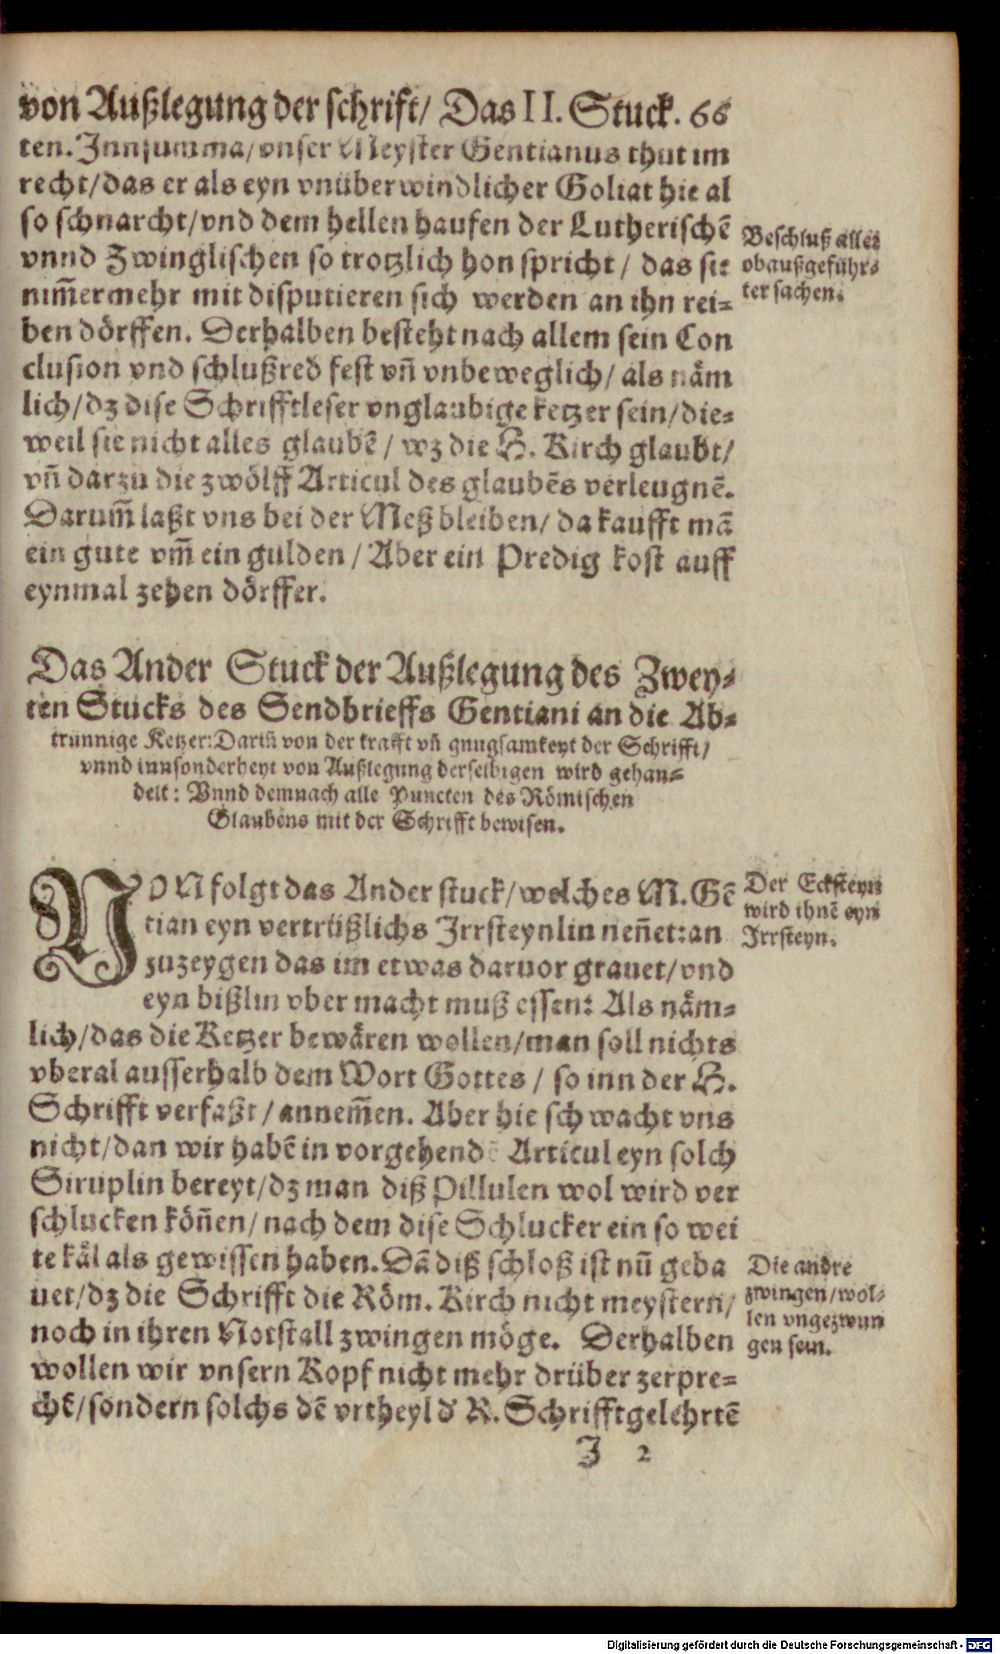 von Außlegung der schrift/ Das II. Stuck. 66
ten. Inn summa/ vnser Meyster Gentianus thut im
recht/ das er als eyn vnüberwindlicher Goliat hie al
so schnarcht/ vnd dem hellen haufen der Lutherischē
vnnd Zwinglischen so trotzlich hon spricht / das sie
nim̃ermehr mit disputieren sich werden an ihn rei-
ben dörffen. Derhalben besteht nach allem sein Con
clusion vnd schlußred fest vñ vnbeweglich/ als näm
lich/ dz dise Schrifftleser vnglaubige ketzer sein/ die-
weil sie nicht alles glaubē / wz die H. Kirch glaubt/
vñ darzu die zwölff Articul des glaubēs verleugnē.
Darum̃ laßt vns bei der Meß bleiben/ da kaufft mā
ein gute vm̃ ein gulden / Aber ein Predig kost auff
eynmal zehen dörffer.
Beschluß aller
obaußgeführ-
ter sachen.
Das Ander Stuck der Außlegung des Zwey-
ten Stucks des Sendbrieffs Gentiani an die Ab-
trünnige Ketzer: Dariñ von der krafft vñ gnugsamkeyt der Schrifft/
vnnd innsonderheyt von Außlegung derselbigen wird gehan-
delt: Vnnd demnach alle Puncten des Römischen
Glaubens mit der Schrifft bewisen.
NON folgt das Ander stuck/ welches M. Gē
tian eyn vertrüßlichs Irrsteynlin neñet: an
zuzeygen das im etwas daruor grauet/ vnd
eyn bißlin vber macht muß essen: Als näm-
lich/ das die Ketzer bewären wollen/ man soll nichts
vberal ausserhalb dem Wort Gottes / so inn der H.
Schrifft verfaßt / annem̃en. Aber hie schwacht vns
nicht/ dan wir habē in vorgehendē Articul eyn solch
Siruplin bereyt/ dz man diß Pillulen wol wird ver
schlucken köñen/ nach dem dise Schlucker ein so wei
te käl als gewissen haben. Dā diß schloß ist nū geba
uet/ dz die Schrifft die Röm. Kirch nicht meystern/
noch in ihren Notstall zwingen möge. Derhalben
wollen wir vnsern Kopf nicht mehr drüber zerpre-
chē/ sondern solchs dē vrtheyl d' R. Schrifftgelehrtē
Der Ecksteyn
wird ihnē eyn
Irrsteyn.
Die andre
zwingen/ wol-
len vngezwun
gen sein.
I 2
Digitalisierung gefördert durch die Deutsche Forschungsgemeinschaft - DFG